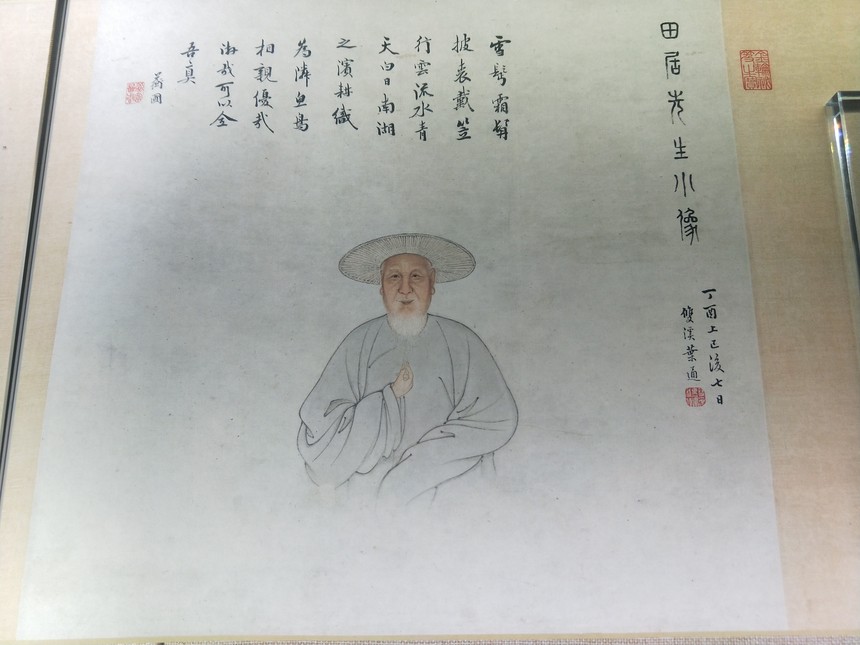 田居先生小像
丁酉上巳後七日
雙溪葉
雪霜
披戴笠
行雲流水青
天白日南湖
之濱耕織
為鄰魚鳥
相親優哉
游哉可以全
吾真